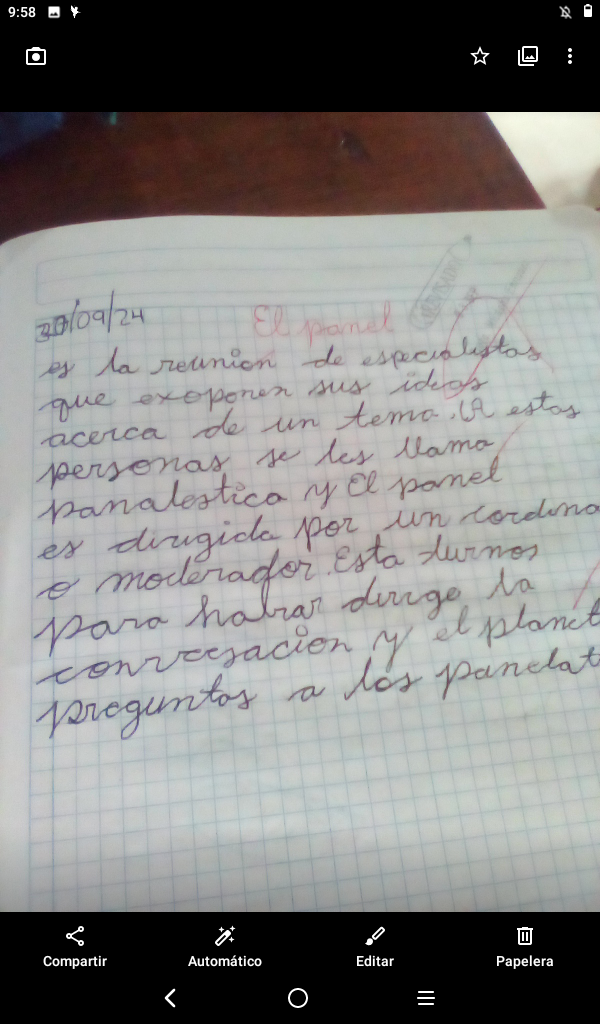 9:58
30/09/24
El panel
REVISADO
es la reunion de especialistas
que exoponen sus ideas
acerca de un tema. A estas
personas se les llama
panalestica y El panel
es dirigida por un cordina
o moderador. Esta turnos
para habrar dirige la
conversacion y el planet
preguntas a los panelat
Compartir
Automático
Editar
Papelera